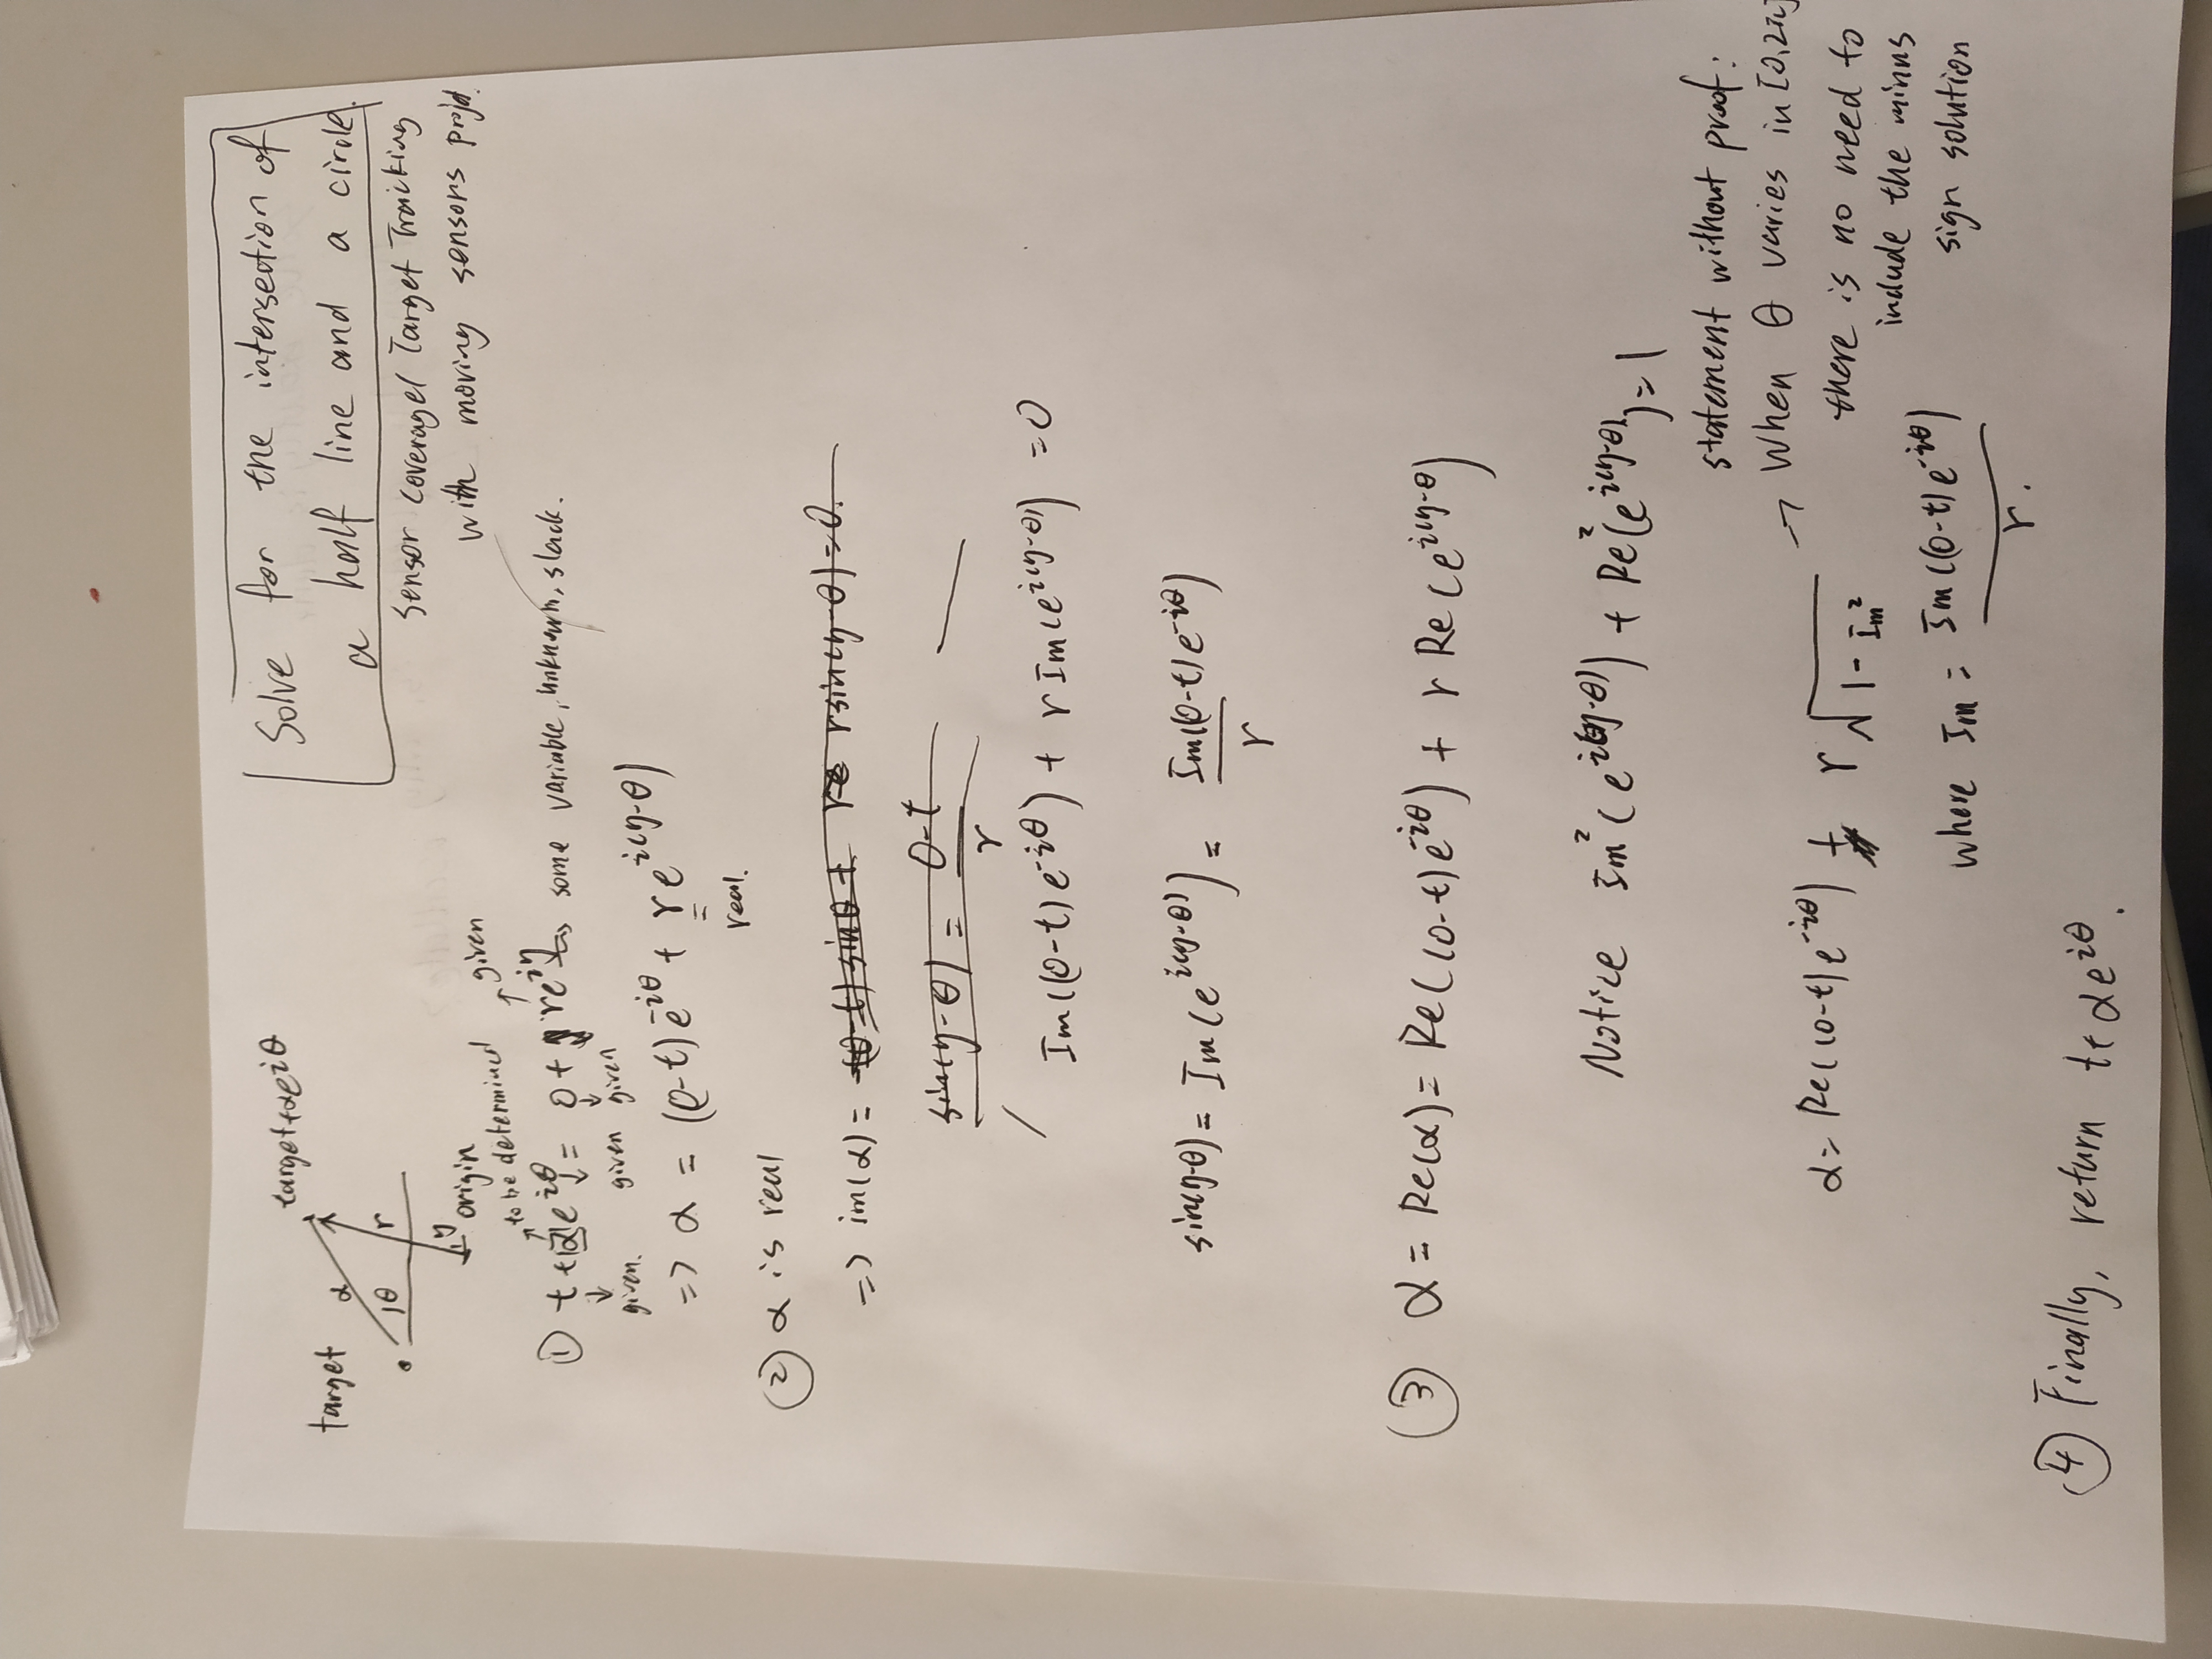 Solve for the intersection of
a half line and a circle.
Sensor Coverage/ Target Tracking
with moving sensors proj'd.
target+αe^{iθ}
target
α
θ
r
η
origin
to be determined
given
① t+|α|e^{iθ} = o + re^{iη} → some variable, unknown, slack.
given.
given
given
=> α = (o-t)e^{-iθ} + re^{i(η-θ)}
real.
② α is real
=> im(α) = -(o-t) sinθ + re rsin(η-θ)=0.
sin(η-θ) = (o-t)/r
Im((o-t)e^{-iθ}) + r Im(e^{i(η-θ)}) =0
sin(η-θ) = Im(e^{i(η-θ)}) = Im((o-t)e^{-iθ})/r
③ α = Re(α) = Re((o-t)e^{-iθ}) + r Re(e^{i(η-θ)})
Notice Im²(e^{i(η-θ)}) + Re²(e^{i(η-θ)})=1
statement without proof:
→ When θ varies in [0,2π]
there is no need to
include the minus
sign solution
α= Re((o-t)e^{-iθ}) + r√(1-Im²)
where Im = Im((o-t)e^{-iθ})/r.
④ Finally, return t+αe^{iθ}.